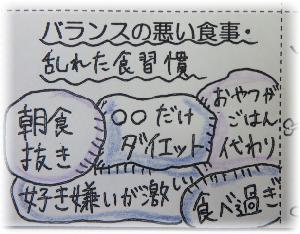 バランスの悪い食事・
乱れた食習慣
朝食
抜き
○○だけ
ダイエット
おやつが
ごはん
代わり
好き嫌いが激しい
食べ過ぎ